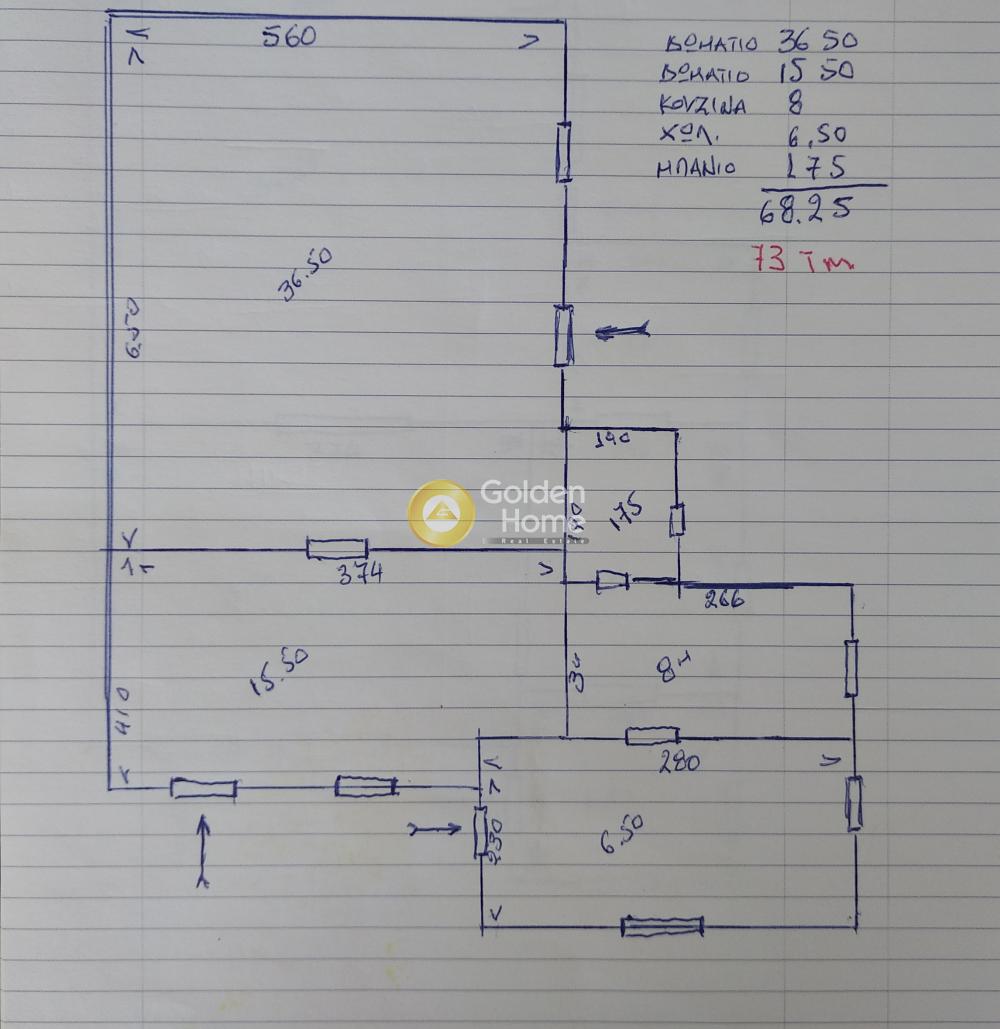 560
ΔΩΜΑΤΙΟ 36 50
ΔΩΜΑΤΙΟ 15 50
ΚΟΥΖΙΝΑ 8
ΧΩΛ. 6,50
ΜΠΑΝΙΟ 1 75
68.25
73 Τm
36.50
650
190
190
175
Golden
Home
Real Estate
374
266
15.50
8
410
280
230
6.50